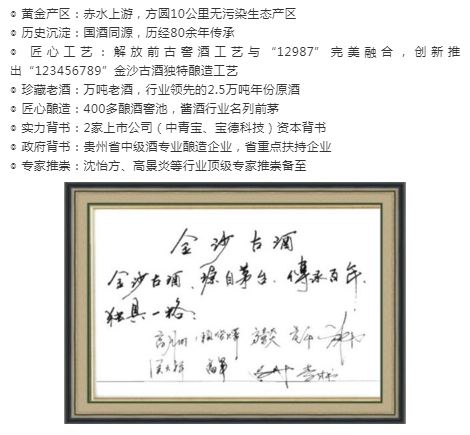 ◎ 黄金产区：赤水上游，方圆10公里无污染生态产区
◎ 历史沉淀：国酒同源，历经80余年传承
◎ 匠心工艺：解放前古窖酒工艺与“12987”完美融合，创新推
出“123456789”金沙古酒独特酿造工艺
◎ 珍藏老酒：万吨老酒，行业领先的2.5万吨年份原酒
◎ 匠心酿造：400多酿酒窖池，酱酒行业名列前茅
◎ 实力背书：2家上市公司（中青宝、宝德科技）资本背书
◎ 政府背书：贵州省中级酒专业酿造企业，省重点扶持企业
◎ 专家推崇：沈怡方、高景炎等行业顶级专家推崇备至
金沙古酒
金沙古酒、源自茅台、傳承百年、
独具一格。